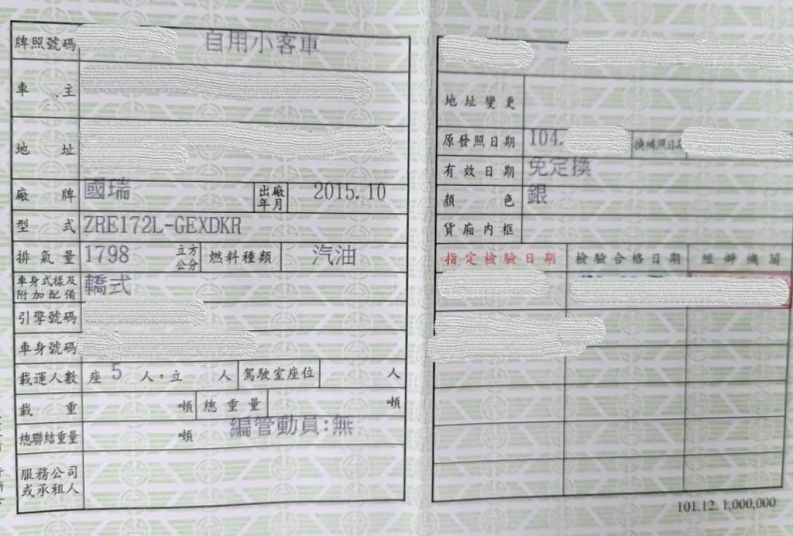 牌照號碼 自用小客車
車主
地址
廠牌 國瑞 出廠年月 2015.10
型式 ZRE172L-GEXDKR
排氣量 1798 立方公分 燃料種類 汽油
車身式樣及附加配備 轎式
引擎號碼
車身號碼
載運人數 座 5 人,立 人 駕駛室座位 人
載重 噸 總重量 噸
總聯結重量 噸 編管動員:無
服務公司或承租人
地址變更
原發照日期 104. 換補照日期
有效日期 免定換
顏色 銀
貨廂內框
指定檢驗日期 檢驗合格日期 經辦機關
101.12. 1,000,000